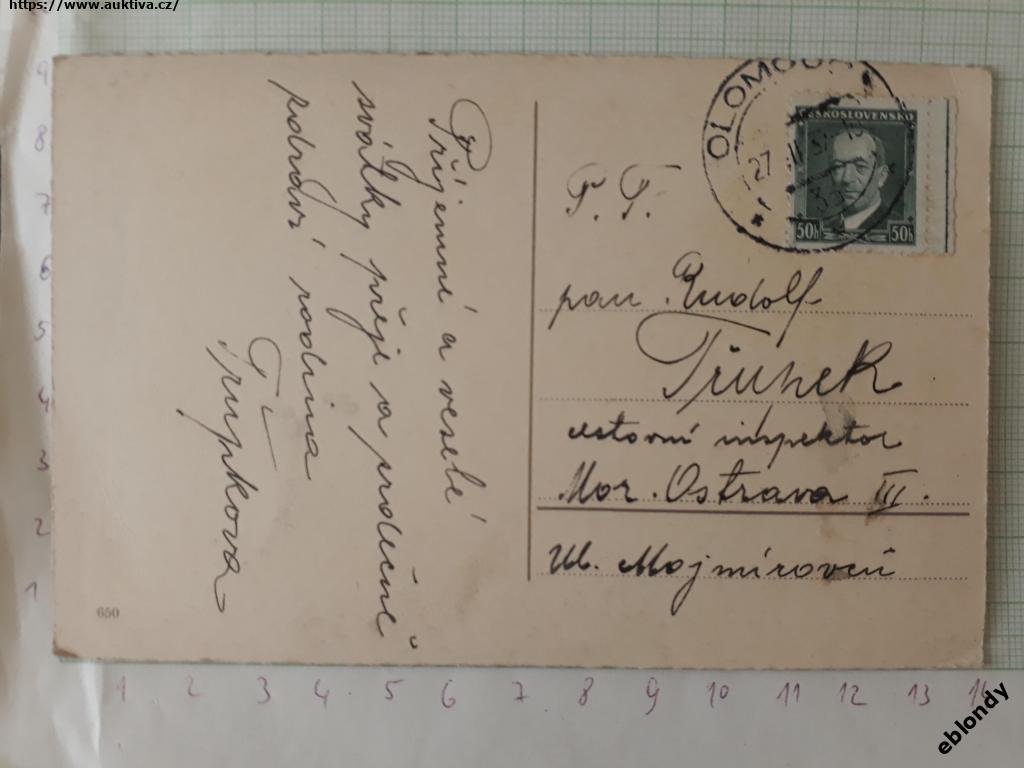 https://www.auktiva.cz/
Příjemné a veselé
svátky přeje a srdečně
pozdraví rodina
Trupkova
OLOMOUC
27
ČESKOSLOVENSKO
50h 50h
P. T.
pan Rudolf
Třunek
cestovní inspektor
Mor. Ostrava III.
Ul. Mojmírovců
650
9
8
7
6
5
4
3
2
1
1 2 3 4 5 6 7 8 9 10 11 12 13 14
eblondy